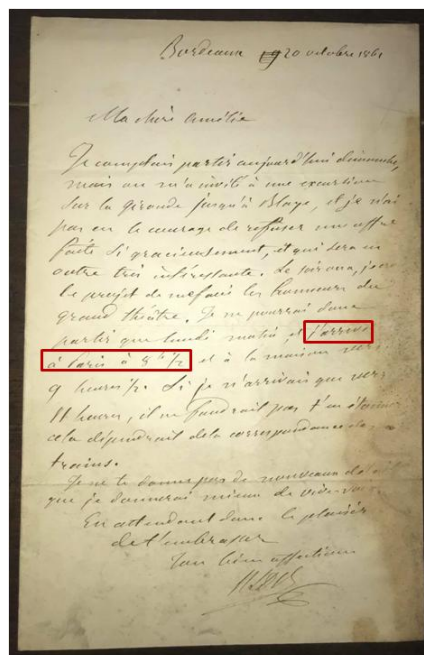 Bordeaux 20 octobre 1861
Ma chère Amélie
Je comptais partir aujourd'hui dimanche,
mais on m'a invité à une excursion
sur la Gironde jusqu'à Blaye, et je n'ai
pas eu le courage de refuser une offre
faite si gracieusement, et qui sera en
outre très intéressante. Le soir on a, je crois
le projet de me faire les honneurs du
grand théâtre. Je ne pourrai donc
partir que lundi matin, et j'arrive
à Paris à 8 h 1/2 et à la maison vers
9 heures 1/2. Si je n'arrivais que vers
11 heures, il ne faudrait pas t'en étonner
cela dépendrait de la correspondance des
trains.
Je ne te donne pas de nouveaux détails
que je donnerai mieux de vive voix.
En attendant donc le plaisir
de t'embrasser
Ton bien affectionné